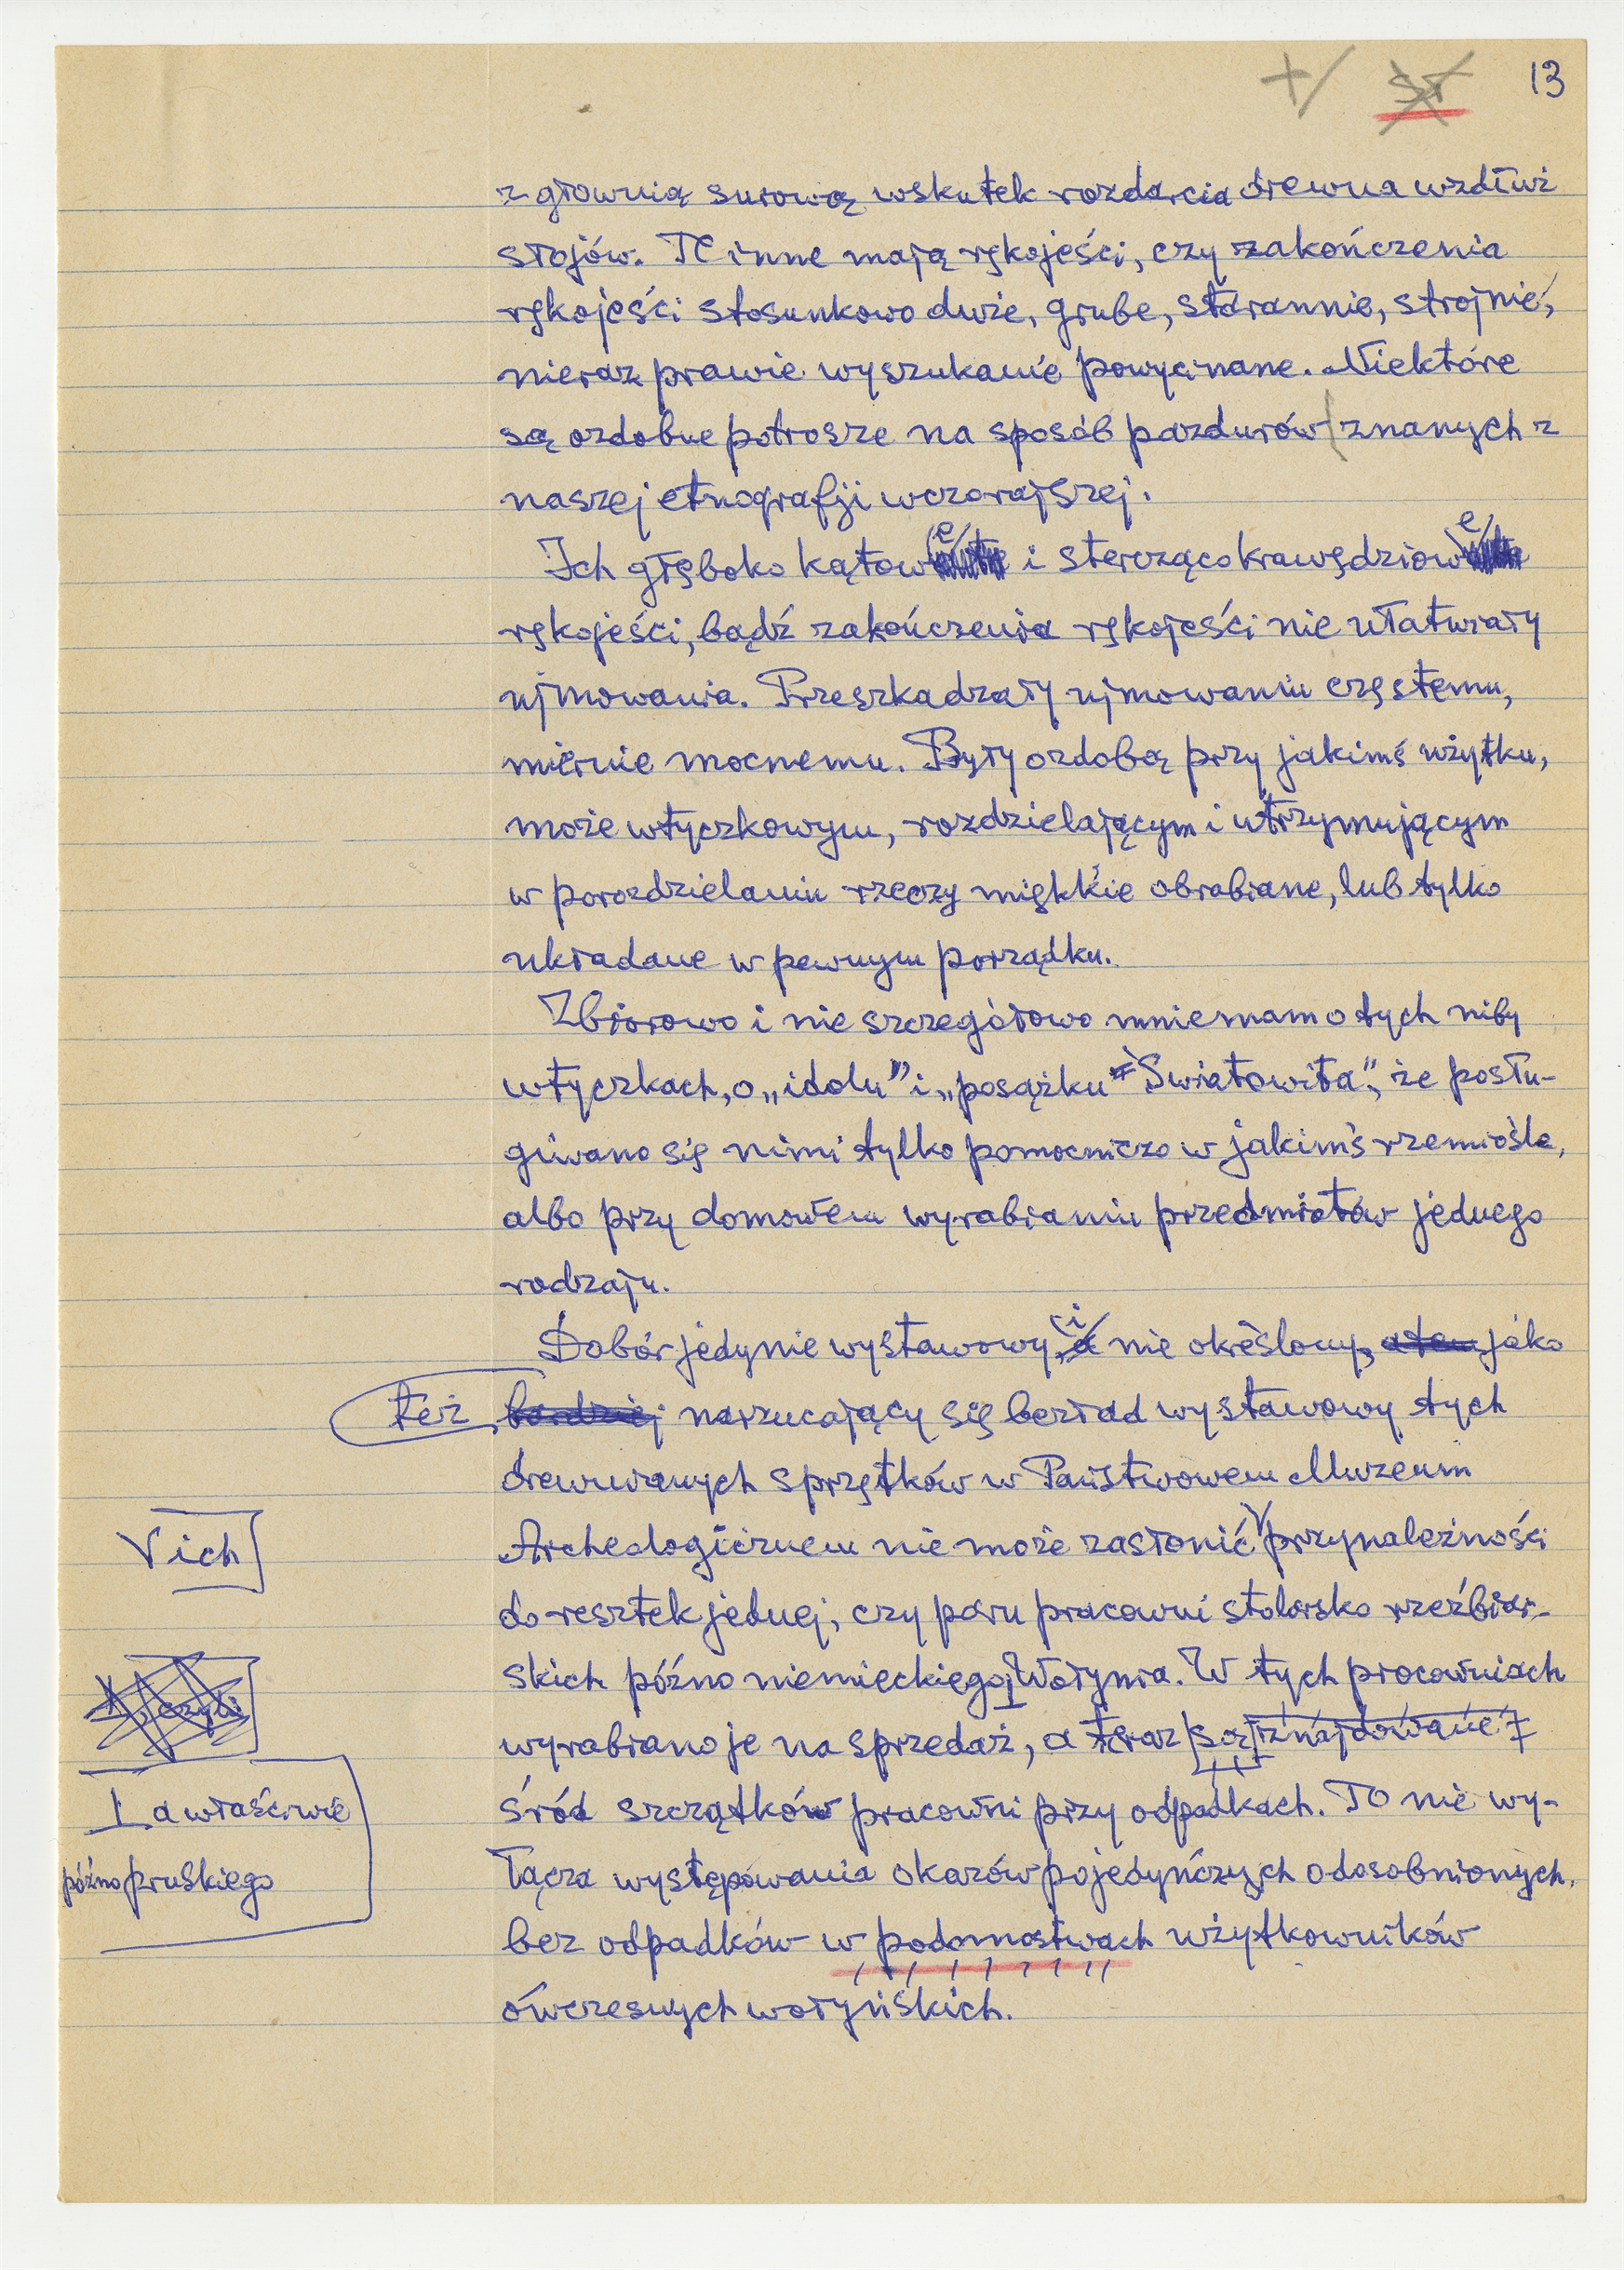 13
z głownią surową wskutek rozdarcia drewna wzdłuż
słojów. Te inne mają rękojeści, czy zakończenia
rękojeści stosunkowo duże, grube, starannie, strojnie,
nieraz prawie wyszukanie powycinane. Niektóre
są ozdobne potrosze na sposób pazdurów znanych z
naszej etnografji wczorajszej.
Ich głęboko kątowe i stercząco krawędziowe
rękojeści, bądź zakończenia rękojeści nie ułatwiały
ujmowania. Przeszkadzały ujmowaniu częstemu,
miernie mocnemu. Były ozdobą przy jakimś użytku,
może wtyczkowym, rozdzielającym i utrzymującym
w porozdzielaniu rzeczy miękkie obrabiane, lub tylko
układane w pewnym porządku.
Zbiorowo i nie szczegółowo mniemam o tych niby
wtyczkach, o „idolu" i „posążku Światowita", że posłu-
giwano się nimi tylko pomocniczo w jakimś rzemiośle,
albo przy domowem wyrabianiu przedmiotów jednego
rodzaju.
Dobór jedynie wystawowy, i nie określony, jako
też bardziej narzucający się bezład wystawowy tych
drewnianych sprzętków w Państwowem Muzeum
Archeologicznem nie może zasłonić przynależności
V ich
do resztek jednej, czy paru pracowni stolarsko rzeźbiar-
skich późno niemieckiego Wołynia. W tych pracowniach
wyrabiano je na sprzedaż, a teraz są znajdowane
śród szczątków pracowni przy odpadkach. To nie wy-
a właściwie
późno pruskiego
łącza występowania okazów pojedyńczych odosobnionych,
bez odpadków w podomostwach użytkowników
ówczesnych wołyńskich.